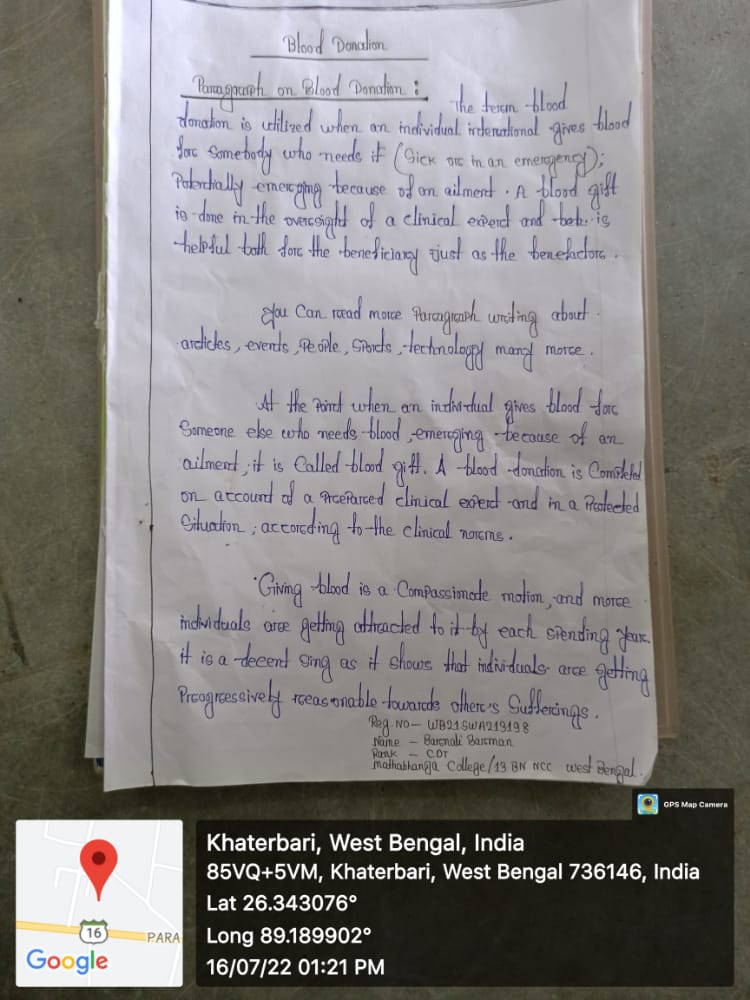 Blood Donation
Paragraph on Blood Donation :
The term blood
donation is utilized when an individual interational gives blood
for Somebody who needs it (Sick or in an emergency);
Potentially emerging because of an ailment. A blood gift
is done in the oversight of a clinical experd and beb. is
helpful both for the beneficiary just as the benefactors.
You Can read more Paragraph writing about
articles, events, People, Sports, technology many more.
At the Point when an individual gives blood for
Someone else who needs blood, emerging because of an
ailment, it is Called blood gift. A blood donation is Completed
on account of a Prepared clinical experd and in a Protected
Situation; according to the clinical norms.
Giving blood is a Compassionate motion, and more
individuals are getting attracted to it by each spending year.
it is a decent sing as it shows that individuals are getting
Progressively reasonable towards other's Sufferings.
Reg. NO - WB21SWA219198
Name - Barnali Barman
Rank - CDT
Mathabhanga College/13 BN NCC West Bengal.
GPS Map Camera
Khaterbari, West Bengal, India
85VQ+5VM, Khaterbari, West Bengal 736146, India
Lat 26.343076°
Long 89.189902°
16/07/22 01:21 PM
16
PARA
Google